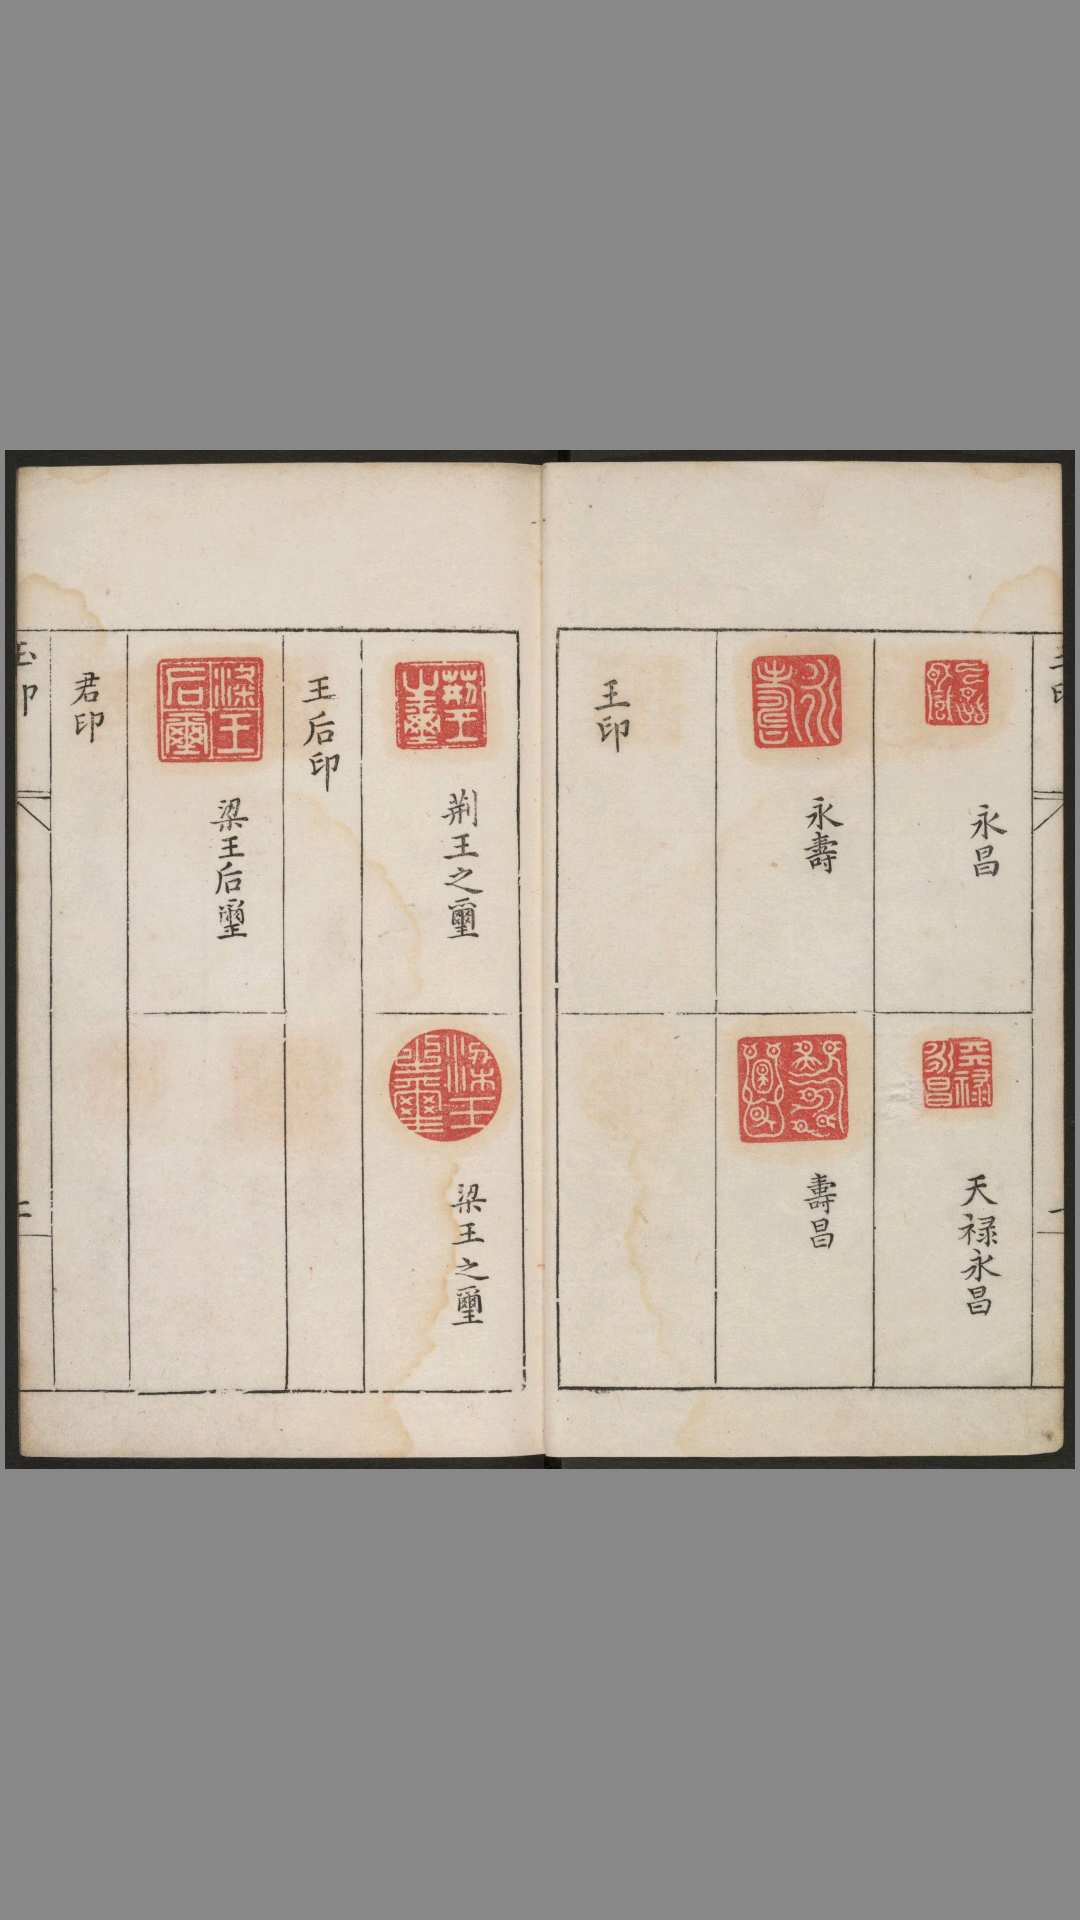 永昌
天禄永昌
永壽
壽昌
王印
荆王之璽
梁王之璽
王后印
梁王后璽
君印
玉印